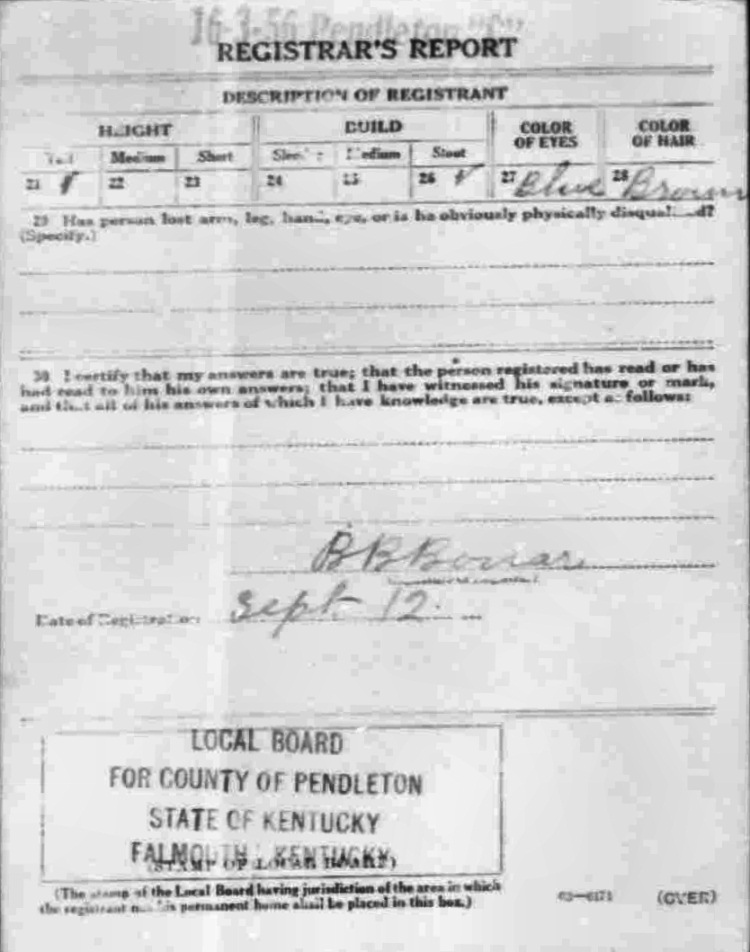 16-3-56 Pendleton "C"
REGISTRAR'S REPORT
DESCRIPTION OF REGISTRANT
HEIGHT BUILD COLOR OF EYES COLOR OF HAIR
Tall Medium Short Slender Medium Stout
21 ✓ 22 23 24 25 26 ✓ 27 Blue 28 Brown
29 Has person lost arm, leg, hand, eye, or is he obviously physically disqualified?
(Specify.)
30 I certify that my answers are true; that the person registered has read or has
had read to him his own answers; that I have witnessed his signature or mark,
and that all of his answers of which I have knowledge are true, except as follows:
B B Bonar
Date of Registration Sept 12
LOCAL BOARD
FOR COUNTY OF PENDLETON
STATE OF KENTUCKY
FALMOUTH, KENTUCKY
(STAMP OF LOCAL BOARD)
(The stamp of the Local Board having jurisdiction of the area in which
the registrant has his permanent home shall be placed in this box.)
03—6171 (OVER)